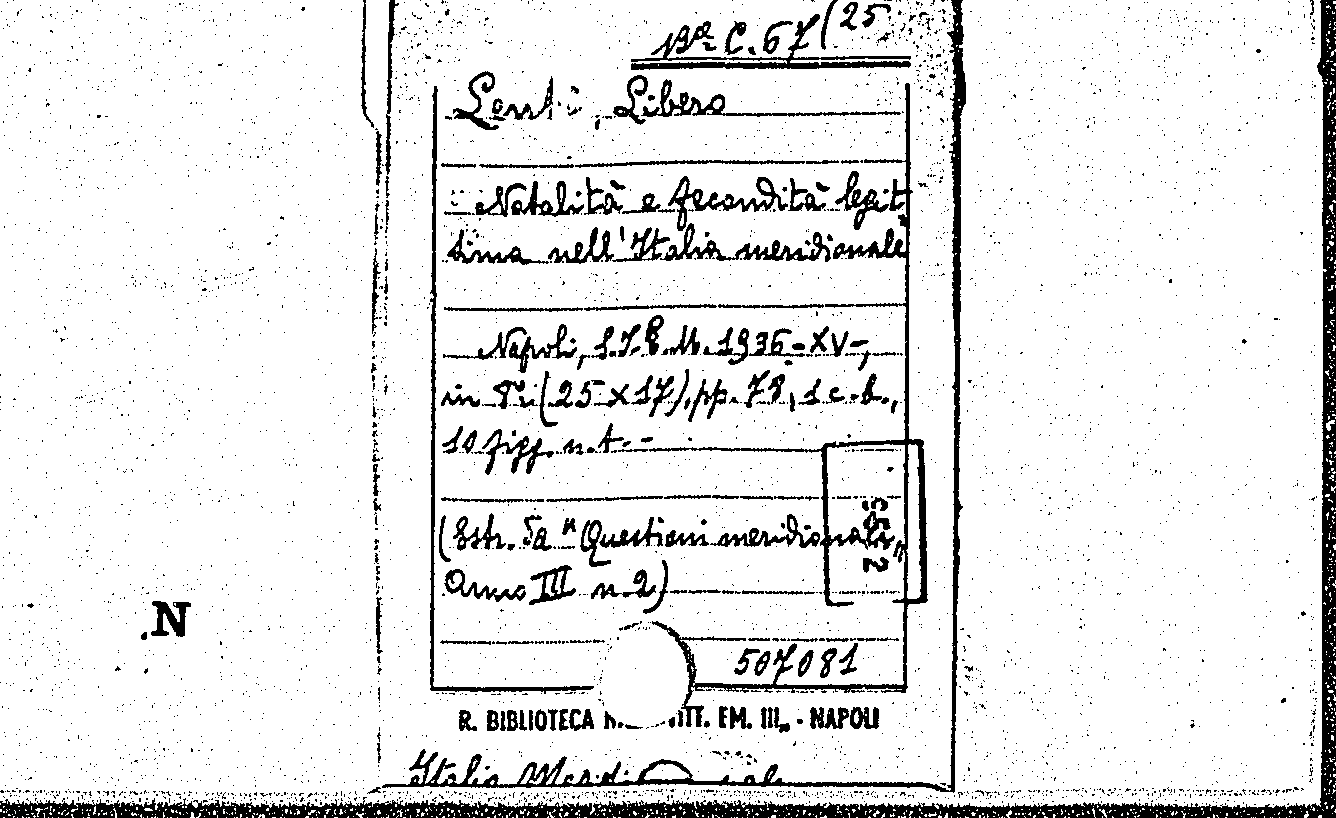 Bª C. 67(25
Lenti, Libero
Natalità e fecondità legit
tima nell'Italia meridionale
Napoli, S.I.E.M. 1936-XV-,
in 8º (25 x 17), pp. 78, 1 c. b.,
10 figg. n. t. -
(Estr. da "Questioni meridionali"
Anno III n. 2)
C52
N
507081
R. BIBLIOTECA VITT. EM. III„ - NAPOLI
Italia